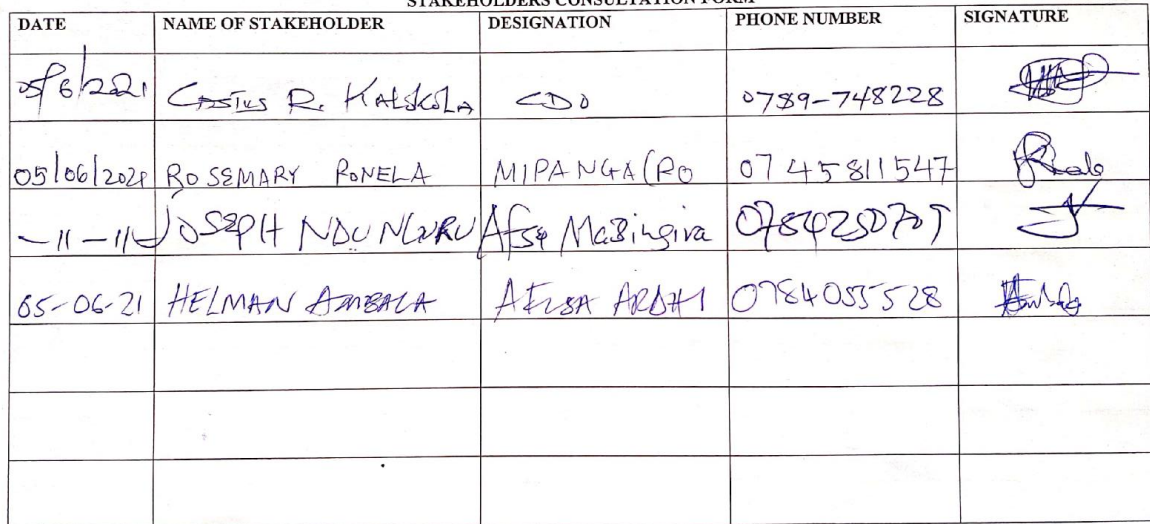 STAKEHOLDERS CONSULTATION FORM
DATE NAME OF STAKEHOLDER DESIGNATION PHONE NUMBER SIGNATURE
05/6/2021 R. CDO 0789-748228
05/06/2021 ROSEMARY RONELA MIPANGA(RO 0745811547
-11-11- JOSEPH NDUNGURU Afsa Mazingira
05-06-21 HELMAN AMBALA AFISA ARDHI 0784055528